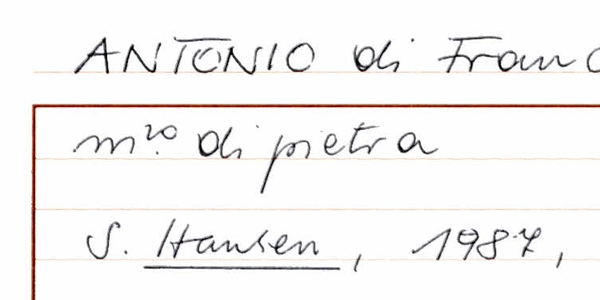 ANTONIO di Franc
m.ro di pietra
S. Hansen, 1987,